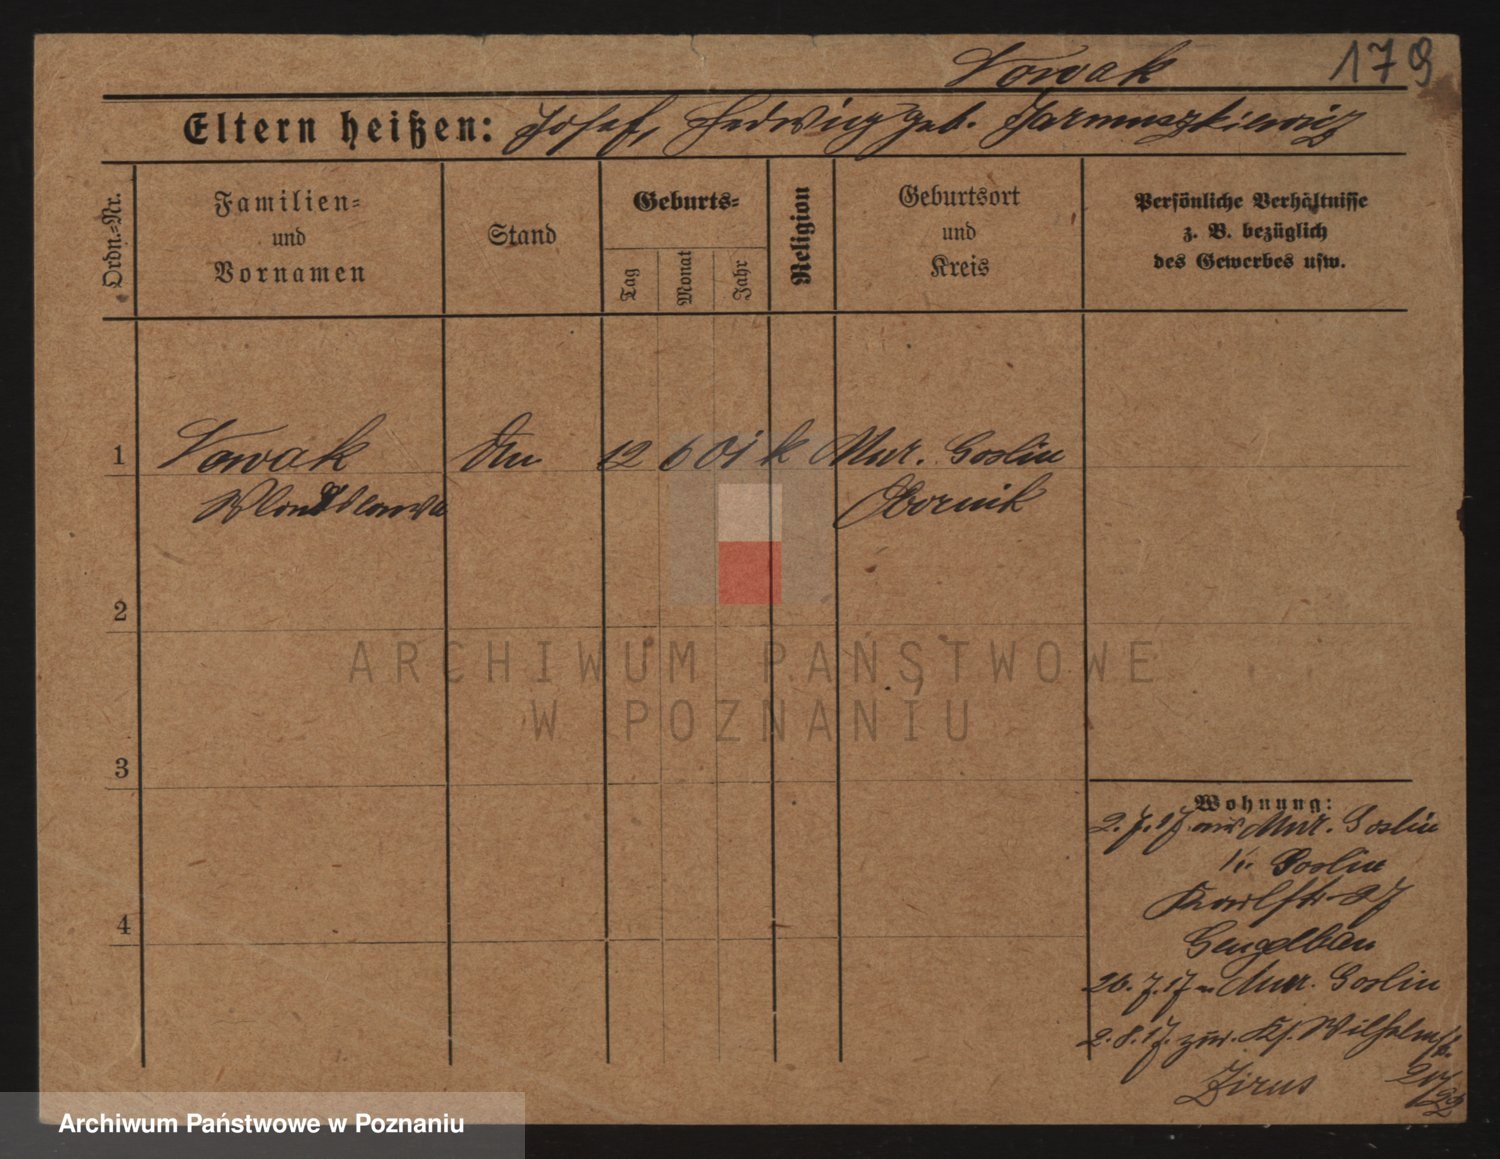 Nowak 179
Eltern heißen: Josef, Hedwig geb. Jarmuszkiewicz
Ordn.-Nr.
Familien-
und
Vornamen
Stand
Geburts-
Tag
Monat
Jahr
Religion
Geburtsort
und
Kreis
Persönliche Verhältnisse
z. B. bezüglich
des Gewerbes usw.
1 Nowak 12 6 01 k Mur. Goslin
Obornik
2
ARCHIWUM PAŃSTWOWE
W POZNANIU
3
Wohnung:
2.7.17 aus Mur. Goslin
Goslin
Karlstr. 27
4
26.7.17 n Mur. Goslin
2.8.17. zur. Ks. Wilhelmstr.
Zirus
Archiwum Państwowe w Poznaniu